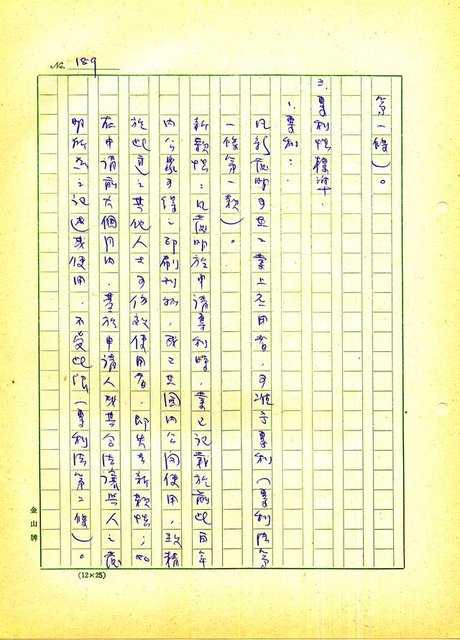 No. 189
第一條)。
三.專利性標準:
1.專利:
凡新發明可在工業上應用者,可准予專利(專利法第
一條第一款)。
新穎性:凡發明於申請專利時,業已記載於前此百年
內公眾可得之印刷刊物,或已在國內公開使用,致精
於此道之其他人士可仿效使用者,即失去新穎性;如
在申請前六個月內,基於申請人或其合法讓與人之發
明所為之記述或使用,不受此限(專利法第二條)。
金山牌
(12×25)